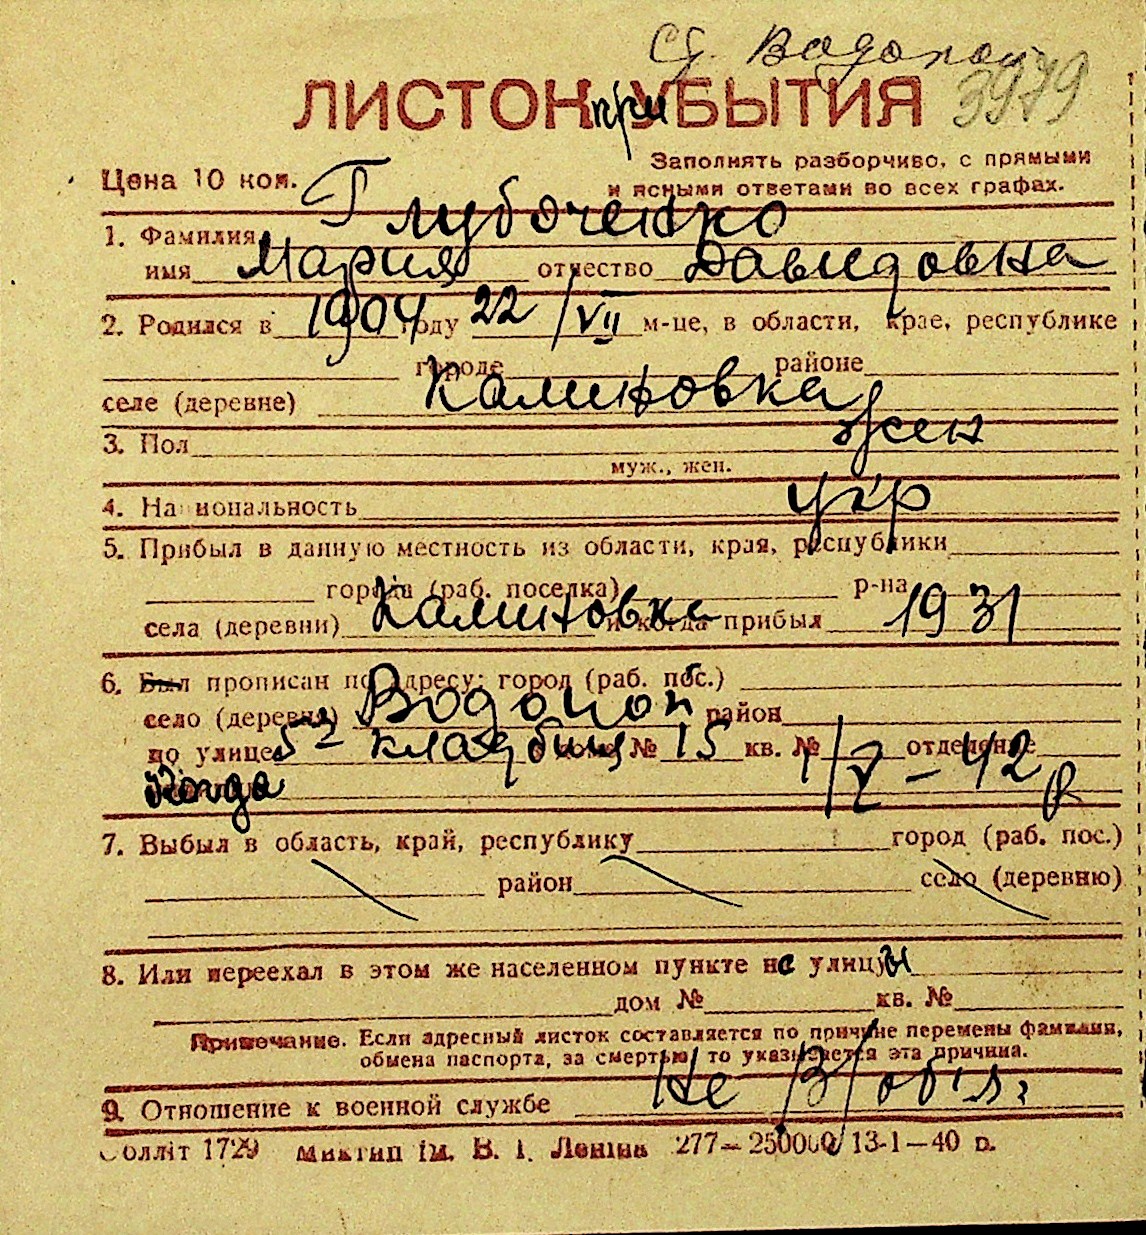 Сд. Водопой
3979
ЛИСТОК при УБЫТИЯ
Цена 10 коп.
Заполнять разборчиво, с прямыми
и ясными ответами во всех графах.
1. Фамилия Глубоченко
имя Мария отчество Давидовна
2. Родился в 1904 году 22/VII м-це, в области, крае, республике
городе районе
селе (деревне) Калиновка
3. Пол жен
муж., жен.
4. Национальность укр
5. Прибыл в данную местность из области, края, республики
города (раб. поселка) р-на
села (деревни) Калиновка и когда прибыл 1931
6. Был прописан по адресу: город (раб. пос.)
село (деревня) Водопой район
по улице 5я кладбищ дома № 15 кв. № отделение
когда 1/V-42 р
7. Выбыл в область, край, республику город (раб. пос.)
район село (деревню)
8. Или переехал в этом же населенном пункте не улицы
дом № кв. №
Примечание. Если адресный листок составляется по причине перемены фамилии,
обмена паспорта, за смертью, то указывается эта причина.
9. Отношение к военной службе Не в/обяз.
Солліт 1729 Миктип ім. В. І. Леніна 277—250000 13-1—40 р.